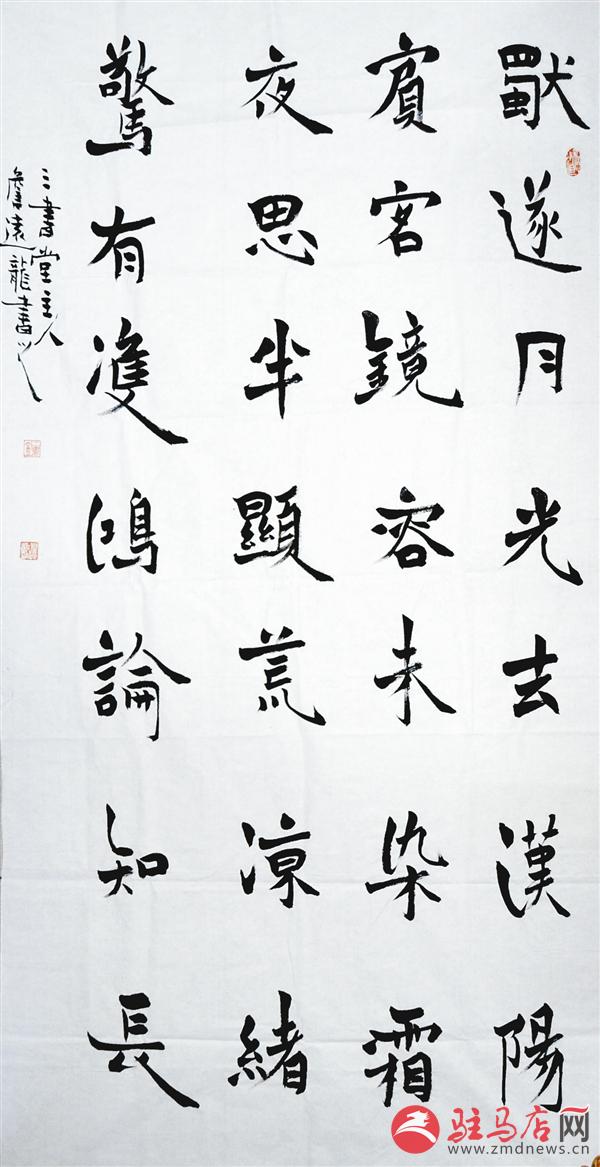 獨逐月光去漢陽
賓客鏡容未染霜
夜思半顯荒涼緒
驚有雙鴻論知長
三書堂主人
詹遠龍書
驻马店网
www.zmdnews.cn